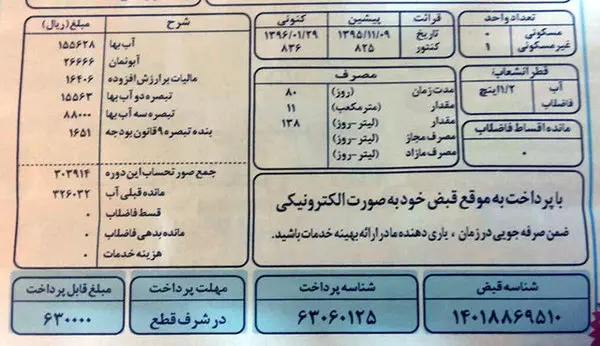 تعداد واحد
مسکونی ۰
غیرمسکونی ۱
قطر انشعاب:
آب ۱/۲ اینچ
فاضلاب
مانده اقساط فاضلاب
۰
قرائت پیشین کنونی
تاریخ ۱۳۹۵/۱۱/۰۹ ۱۳۹۶/۰۱/۲۹
کنتور ۸۲۵ ۸۳۶
مصرف
مدت زمان (روز) ۸۰
مقدار (مترمکعب) ۱۱
مقدار (لیتر-روز) ۱۳۸
مصرف مجاز (لیتر-روز)
مصرف مازاد (لیتر-روز)
شرح مبلغ(ریال)
آب بها ۱۵۵۶۲۸
آبونمان ۲۶۶۶۶
مالیات بر ارزش افزوده ۱۶۴۰۶
تبصره دو آب بها ۱۵۵۶۳
تبصره سه آب بها ۸۸۰۰۰
بنده تبصره ۹ قانون بودجه ۱۶۵۱
جمع صورتحساب این دوره ۳۰۳۹۱۴
مانده قبلی آب ۳۲۶۰۳۲
قسط فاضلاب ۰
مانده بدهی فاضلاب ۰
هزینه خدمات ۰
با پرداخت به موقع قبض خود به صورت الکترونیکی
ضمن صرفه جویی در زمان ، یاری دهنده ما در ارائه بهینه خدمات باشید.
شناسه قبض
۱۴۰۱۸۸۶۹۵۱۰
شناسه پرداخت
۶۳۰۶۰۱۲۵
مهلت پرداخت
در شرف قطع
مبلغ قابل پرداخت
۶۳۰۰۰۰